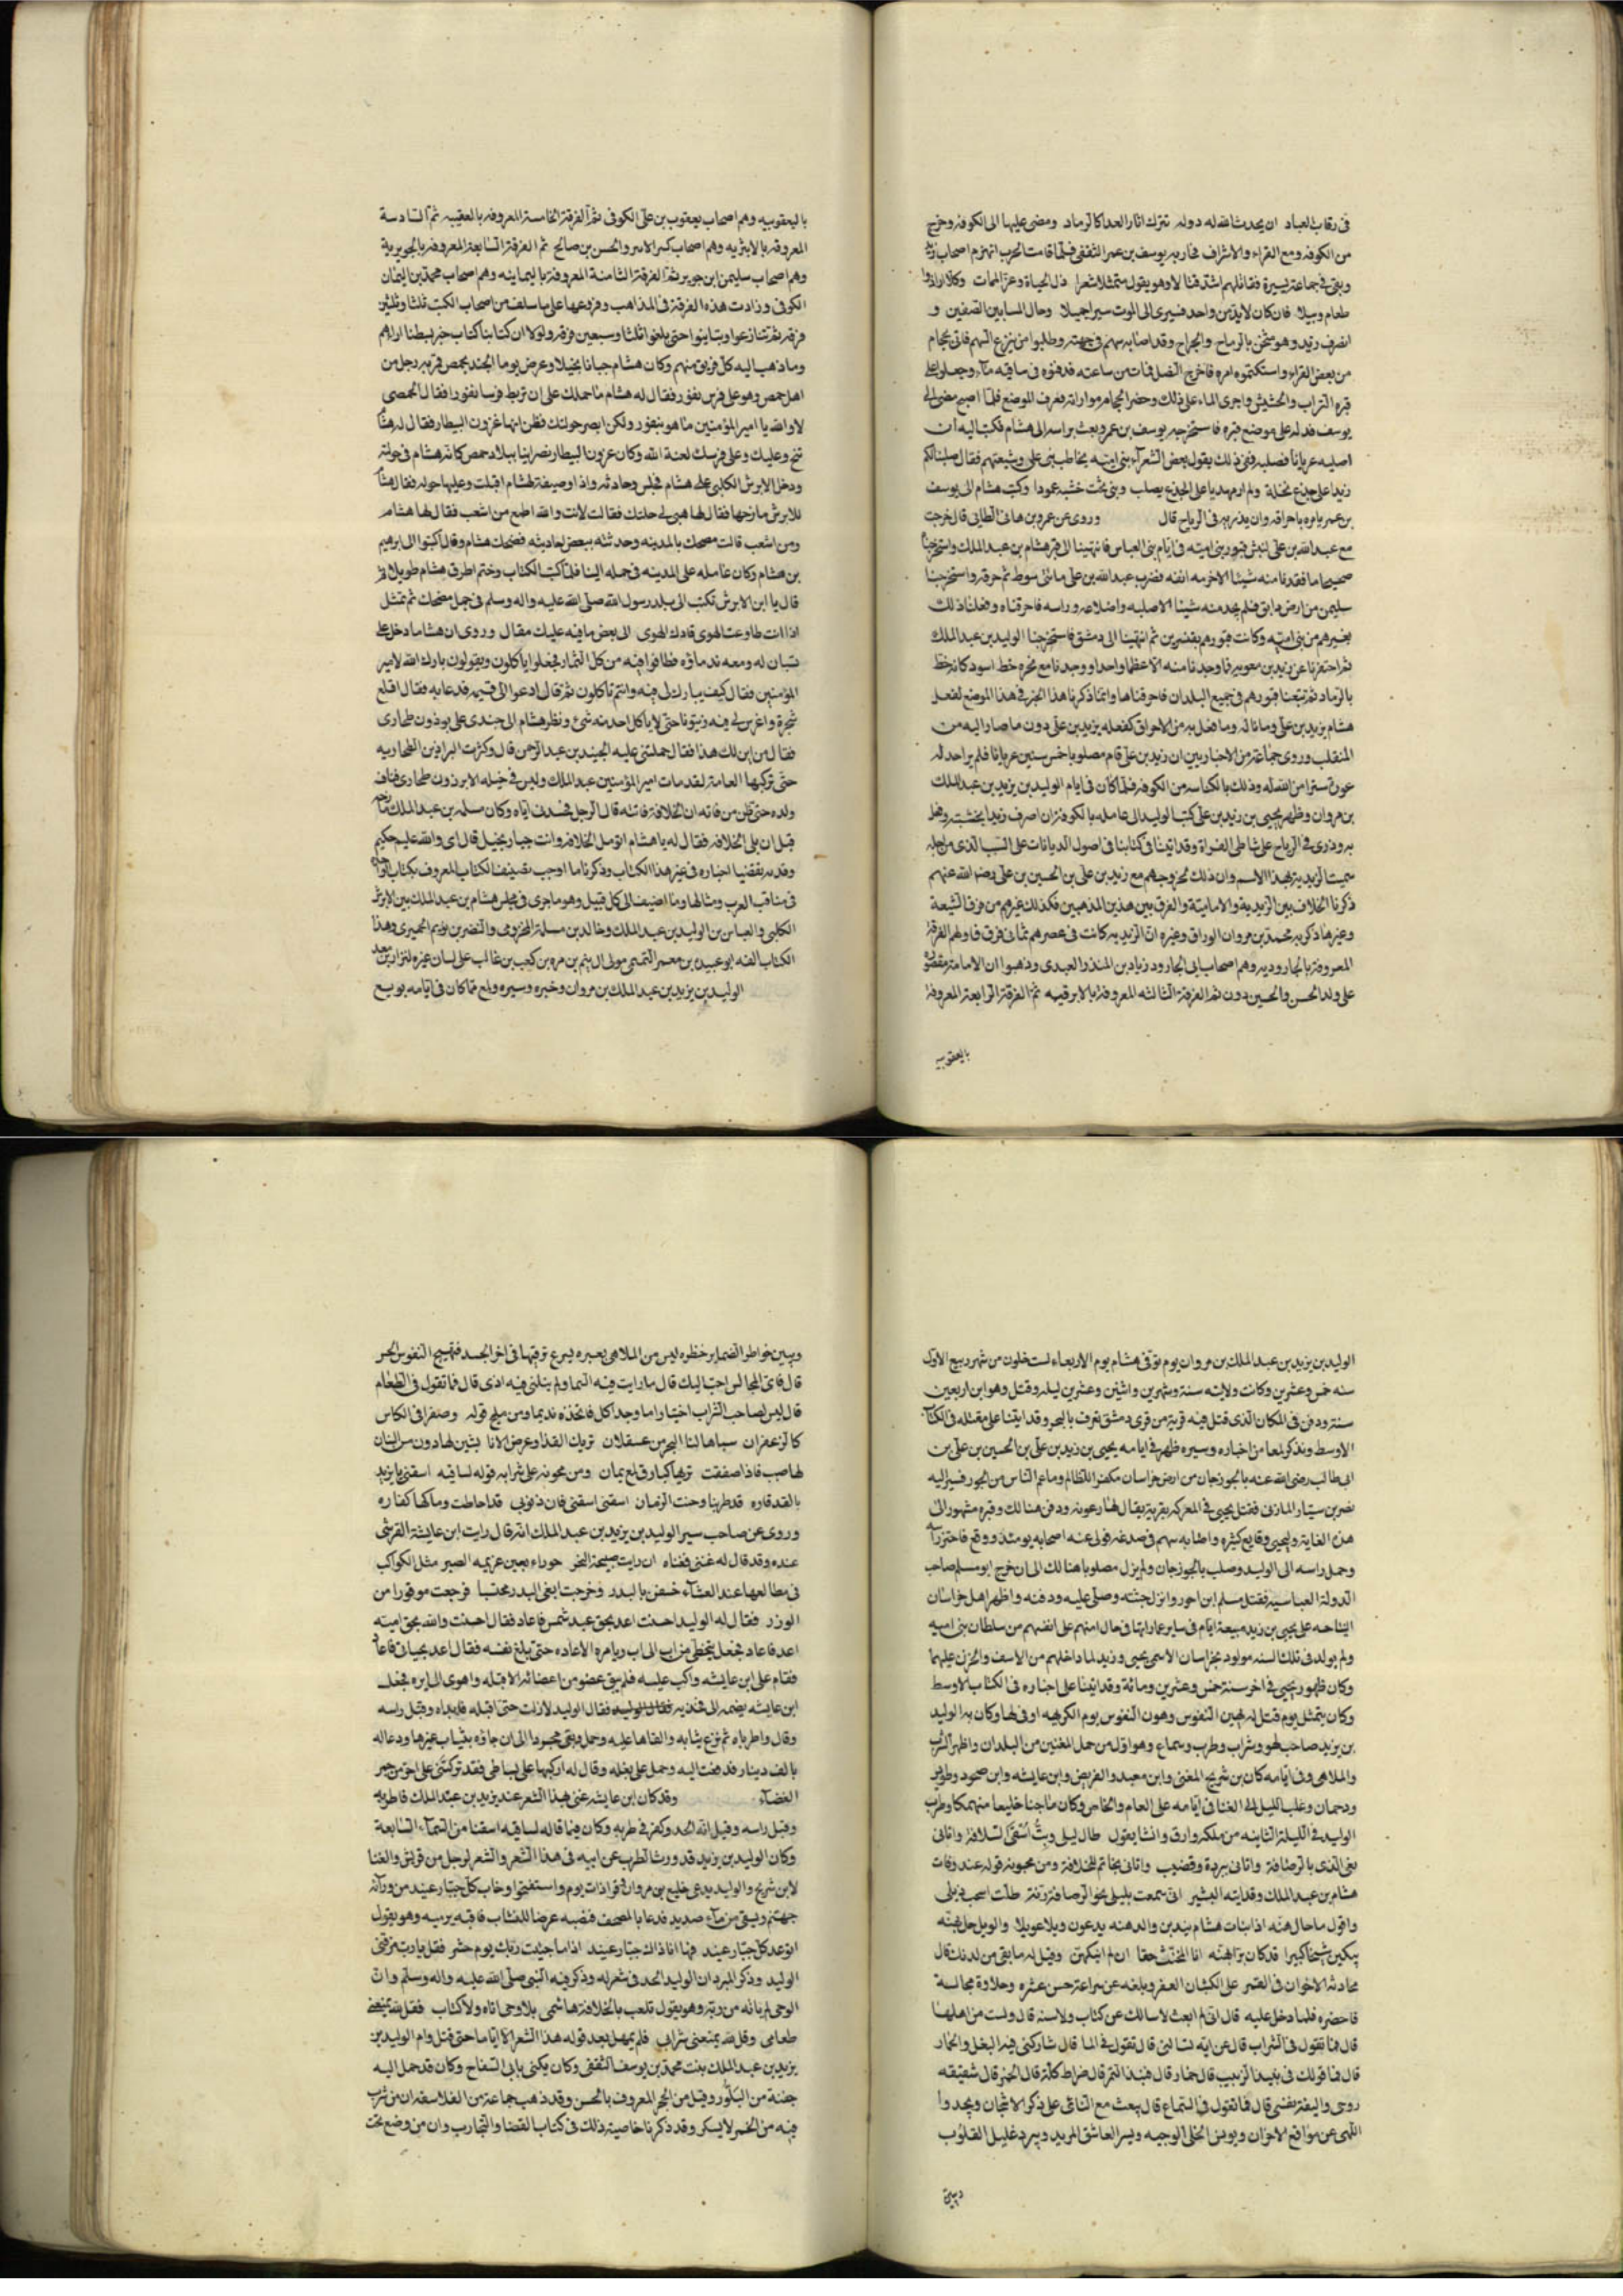 فى رقاب العباد ان يحدث الله له دوله تترك اثار العدا كالرماد ومضى عليها الى الكوفه وخرج
من الكوفه ومع القراء والاشراف فحاربه يوسف بن عمر الثقفى فلما قامت الحرب انهزم اصحاب زيد
وبقى فى جماعة يسيرة فقاتلهم اشد قتالا وهو يقول متمثلا شعرا ذل الحياة وعز الممات وكلا اراه
طعام وبيلا فان كان لا بد من واحد فسيرى الى الموت سيرا جميلا وحال المسا بين الصفين و
انصرف زيد وهو مثخن بالرماح والجراح وقد اصابه سهم فى جبهته وطلبوا من ينزع السهم فاتى بحجام
من بعض القراء واستكتموه امره فاخرج النصل فمات من ساعته فدفنوه فى ساقيه مآء وجعلوا على
قبره التراب والحشيش واجرى الماء على ذلك وحضر الحجام مواراته فعرف الموضع فلما اصبح مضى الى
يوسف فدله على موضع قبره فاستخرجه يوسف بن عمر وبعث براسه الى هشام فكتب اليه ان
اصلبه عريانا فصلبه ففى ذلك يقول بعض الشعرآء بنى اميه يخاطب بنى على وشيعتهم فقال صلبنا لكم
زيدا على جذع نخلة ولم ار مهديا على الجذع يصلب وبنى تحت خشبه عمودا وكتب هشام الى يوسف
بن عمر يامره باحراقه وان يذريه فى الرياح قال وروى عن عمرو بن هانى الطايى قال خرجت
مع عبد الله بن على لنبش قبور بنى اميه فى ايام بنى العباس فانتهينا الى قبر هشام بن عبد الملك واستخرجنا
صحيحا ما فقدنا منه شيئا الا خرمه انفه فضرب عبد الله بن على مائتى سوط ثم حرقه واستخرجنا
سليمن من ارض دابق فلم يجد منه شيئا الا صلبه واضلاعه وراسه فاحرقناه وفعلنا ذلك
بغيرهم من بنى اميه وكانت قبورهم بقنسرين ثم انتهينا الى دمشق فاستخرجنا الوليد بن عبد الملك
ثم احتفرنا عن يزيد بن معويه فما وجدنا منه الا عظما واحدا ووجدنا مع نحره خط اسود كانه خط
بالرماد ثم تتبعنا قبورهم فى جميع البلدان فاحرقناها وانما ذكرنا هذا الخبر فى هذا الموضع لفعل
هشام بزيد بن على وما ناله وما فعل به من الاحراق كفعله بزيد بن على دون ما صار اليه من
المنقلب وروى جماعة من الاخباريين ان زيد بن على قام مصلوبا خمس سنين عريانا فلم ير احد له
عورة سترا من الله له وذلك بالكناسه من الكوفه فلما كان فى ايام الوليد بن يزيد بن عبد الملك
بن مروان وظهر يحيى بن زيد بن على كتب الوليد الى عامله بالكوفة ان احرق زيدا بخشبته وفعل
به وذرى فى الرياح على شاطى الفراة وقد اتينا فى كتابنا فى اصول الديانات على السبب الذى من اجله
سميت الزيدية بهذا الاسم وان ذلك لخروجهم مع زيد بن على بن الحسين بن على رضى الله عنهم
ذكرنا الخلاف بين الزيدية والامامية والفرق بين هذين المذهبين فكذلك غيرهم من فرق الشيعة
وغيرها ذكر به محمد بن مروان الوراق وغيره ان الزيديه كانت فى عصرهم ثمانى فرق فاولهم الفرقة
المعروفة بالجاروديه وهم اصحاب ابى الجارود زياد بن المنذر العبدى وذهبوا ان الامامة مقصوره
على ولد الحسن والحسين دون ثم الفرقة الثالثه المعروفة بالابرقيه ثم الفرقة الرابعة المعروفة
باليعقوبيه
باليعقوبيه وهم اصحاب يعقوب بن على الكوفى ثم الفرقة الخامسة المعروفه بالعقبيه ثم السادسة
المعروفه بالابتريه وهم اصحاب كثير الابتر والحسن بن صالح ثم الفرقة السابعة المعروفه بالجريرية
وهم اصحاب سليمن ابن جرير ثم الفرقة الثامنة المعروفة باليمانيه وهم اصحاب محمد بن اليمان
الكوفى وزادت هذه الفرقة فى المذاهب وفرعها على ما سلف من اصحاب الكتب ثلثا وثلثين
فرقه ثم تنازعوا وتباينوا حتى بلغوا ثلثا وسبعين فرقه ولولا ان كتابنا كتاب خبر لبسطنا اراهم
وما ذهب اليه كل فريق منهم وكان هشام جبانا بخيلا وعرض يوما الجند بحمص فمر به رجل من
اهل حمص وهو على فرس نفور فقال له هشام ما حملك على ان تربط فرسا نفورا فقال الحمصى
لا والله يا امير المؤمنين ما هو بنفور ولكن ابصر حولتك فظن انها عزون البيطار فقال له هشام
تنح وعليك وعلى فرسك لعنة الله وكان عزون البيطار نصرانيا ببلاد حمص كانه هشام فى حولته
ودخل الابرش الكلبى على هشام فجلس وحادثه واذا وصيفة لهشام اقبلت وعليها حله فقال هشام
للابرش مازحها فقال لها هبى لى حلتك فقالت لانت والله اطمع من اشعب فقال لها هشام
ومن اشعب قالت مضحك بالمدينه وحدثته ببعض احاديثه فضحك هشام وقال اكتبوا الى ابرهيم
بن هشام وكان عامله على المدينه فى حمله الينا فلما كتب الكتاب وختم اطرق هشام طويلا ثم
قال يا ابن الابرش تكتب الى بلد رسول الله صلى الله عليه واله وسلم فى حمل مضحك ثم تمثل
اذا انت طاوعت الهوى قادك الهوى الى بعض ما فيه عليك مقال وروى ان هشاما دخل على
بستان له ومعه ندماؤه فطافوا فيه من كل الثمار فجعلوا ياكلون ويقولون بارك الله لامير
المؤمنين فقال كيف يبارك لى فيه وانتم تاكلون ثم قال ادعوا الى قيمه فدعا به فقال اقلع
شجرة واغرس لى فيه زيتونا حتى لا ياكل احد منه شئ ونظر هشام الى جندى على برذون طخارى
فقال من اين لك هذا فقال حملنى عليه الجنيد بن عبد الرحمن قال وكثرت البراذين الطخاريه
حتى تركبها العامة لقد مات امير المؤمنين عبد الملك وليس فى خيله الا برذون طخارى فتنافس
ولده حتى ظن من فاته ان الخلافة فاتته قال الرجل فحسدنى اياه وكان سلمه بن عبد الملك مازحه
قبل ان يلى الخلافه فقال له يا هشام اتؤمل الخلافه وانت جبار بخيل قال اى والله عليم حكيم
وقد تقضينا اخباره فى غير هذا الكتاب وذكرنا ما اوجب تصنيف الكتاب المعروف بكتاب الواحدة
فى مناقب العرب ومثالبها وما اضيف الى كل قبيل وهو ما جرى فى مجلس هشام بن عبد الملك بين الابرش
الكلبى والعباس بن الوليد بن عبد الملك وخالد بن مسلمة المخزومى والنضر بن يريم الحميرى وهذا
الكتاب الفه ابو عبيدة بن معمر التيمى مولى ال تيم بن مره بن كعب بن غالب على لسان غيره لنزار بن معد
الوليد بن يزيد بن عبد الملك بن مروان وخبره وسيره ولمع مما كان فى ايامه بويع
الوليد بن يزيد بن عبد الملك بن مروان يوم توفى هشام يوم الاربعاء لست خلون من شهر ربيع الاول
سنه خمس وعشرين وكانت ولايته سنة وشهرين واثنين وعشرين ليله وقتل وهو ابن اربعين
سنة ودفن فى المكان الذى قتل فيه قرية من قرى دمشق تعرف بالبحر وقد اتينا على مقتله فى الكتاب
الاوسط ونذكر لمعا من اخباره وسيره ظهر فى ايامه يحيى بن زيد بن على بن الحسين بن على بن
ابى طالب رضى الله عنه بالجوزجان من ارض خراسان منكرا للظلم وما عم الناس من الجور فسير اليه
نصر بن سيار المازنى فقتل يحيى فى المعركه بقرية يقال لها ارعونه ودفن هنالك وقبره مشهور الى
هذه الغاية وليحيى وقايع كثيره واصابه سهم فى صدغه فولى عنه اصحابه يومئذ ووقع فاحتز راسه
وحمل راسه الى الوليد وصلب بالجوزجان ولم يزل مصلوبا هنالك الى ان خرج ابو مسلم صاحب
الدولة العباسيه فقتل مسلم ابن احور وانزل جثته وصلى عليه ودفنه واظهر اهل خراسان
النياحه على يحيى بن زيد سبعة ايام فى ساير عمارتها فى حال امنهم على انفسهم من سلطان بنى اميه
ولم يولد فى تلك السنه مولود بخراسان الا سمى بيحيى وزيد لما داخلهم من الاسف والحزن عليهما
وكان ظهور يحيى فى اخر سنة خمس وعشرين ومائة وقد اتينا على اخباره فى الكتاب الاوسط
وكان يتمثل يوم قتله نهين النفوس وهون النفوس يوم الكريهه اوفى لها وكان به الوليد
بن يزيد صاحب لهو وشراب وطرب وسماع وهو اول من حمل المغنين من البلدان واظهر الشرب
والملاهى وفى ايامه كان بن شريح المغنى وابن معبد والغريض وابن عايشه وابن محرز وطويس
ودحمان وغلب الليل الى الغنا فى ايامه على العام والخاص وكان ماجنا خليعا منهمكا وطرب
الوليد فى الليلة الثانيه من ملكه وارق وانشا يقول طال ليلى وبتّ اُسْقَى السلافة واتانى
نعى الذى بالرصافة واتانى ببردة وقضيب واتانى بخاتم للخلافة ومن مجونه قوله عند وفات
هشام بن عبد الملك وقد اتيه البشير انى سمعت بليلى نحو الرصافة رنة ظلت اسحب ذيلى
واقول ما حالهنه اذا بنات هشام يندبن والدهنه يدعون ويلا وعويلا والويل حل بهنه
يبكين شيخا كبيرا قد كان برا بهنه انا المخنث حقا ان لم انيكهن وقيل له ما بقى من لذتك قال
محادثة الاخوان فى القمر على الكثبان العفر وبلغه عن شراعة حسن عشره وحلاوة مجالسة
فاحضره فلما دخل عليه قال انى لم ابعث لاسالك عن كتاب ولا سنه قال ولست من اهلهما
قال فما تقول فى الشراب قال عن ايه تسالنى قال تقول فى الما قال شاركنى فيه البغل والحمار
قال فما قولك فى نبيذ الزبيب قال خمار قال فنبيذ التمر قال ضراط كله قال الخمر قال شقيقه
روحى واليفة نفسى قال فما تقول فى السماع قال يبعث مع التانى على ذكر الاشجان ويجدوا
اللهى عن مواقع الاحزان ويونس الخلى الوحيد ويسر العاشق المريد ويبرد غليل القلوب
وبين
وبين خواطر الضماير خظره ليس من الملاهى بعبيره يسرع ترقيها فى اخر الجسد فتهيج النفوس الحر
قال فاى المجالس احب اليك قال ما رايت فيه السما ولم ينلنى فيه اذى قال فما تقول فى الطعام
قال ليس لصاحب الشراب اختيار اما وجد اكل فاتخذه نديما ومن مليح قوله وصفرا فى الكاس
كالزعفران سباها لنا البحر من عسقلان تريك القذا وعرض الانا بشين لها دون مس البنان
لها حبب فاذا صفقت تراها كبارق لمع يمان ومن مجونه على شرابه قوله لساقيه اسقنى يا يزيد
بالقد قاره قد طربنا وحنت الزمان اسقنى اسقنى فان ذنوبى قد احاطت وما لها كفاره
وروى عن صاحب سير الوليد بن يزيد بن عبد الملك انه قال رايت ابن عايشة القرشى
عنده وقد قال له غننى فغناه ان رايت صبيحة النحر حوراء نفين عزيمه الصبر مثل الكواكب
فى مطالعها عند العشآء خسفن بالبدر وخرجت ابغى البدر محتسبا فرجعت موقورا من
الوزر فقال له الوليد احسنت اعد بحق عبد شمس فاعاد فقال احسنت والله بحق اميه
اعد فاعاد فجعل يتخطى من اب الى اب ويامره الاعاده حتى بلغ نفسه فقال اعد بحياتى فاعاد
فقام على ابن عايشه واكب عليه فلم يبق عضو من اعضائه الا قبله واهوى الى ايره فجعل
ابن عايشه يضمه الى فخذيه فقال الوليد لا زلت حتى اقبله فابداه وقبل راسه
وقال واطرباه ثم نزع ثيابه والقاها عليه وحمل وبقى مجردا الى ان جاؤه بثياب غيرها ودعا له
بالف دينار فدفعت اليه وحمل على بغله وقال له اركبها على بساطى فقد تركتنى على احر من جمر
الغضآء وقد كان ابن عايشه غنى بهذا الشعر عند يزيد بن عبد الملك فاطربه
وقبل راسه وقيل انه الحد وكفر فى طربه وكان فيما قاله لساقيه اسقنا من السمآء السابعة
وكان الوليد بن يزيد قد ورث الطرب عن ابيه فى هذا الشعر والشعر لرجل من قريش والغنا
لابن شريح والوليد يدعى خليع بن مروان فقرا ذات يوم واستفتحوا وخاب كل جبار عنيد من ورآئه
جهنم ويسقى من مآء صديد فدعا بالمصحف فنصبه غرضا للنشاب فاقبل يرميه وهو يقول
اتوعد كل جبار عنيد فها انا ذاك جبار عنيد اذا ما جيت ربك يوم حشر فقل يا رب مزقنى
الوليد وذكر المبرد ان الوليد الحد فى شعر له وذكر فيه النبى صلى الله عليه واله وسلم وان
الوحى لم ياته من ربه وهو يقول تلعب بالخلافة هاشمى بلا وحى اتاه ولا كتاب فقل لله يمنعنى
طعامى وقل لله يمنعنى شرابى فلم يمهل بعد قوله هذا الشعر الا اياما حتى قتل وام الوليد بن
يزيد بن عبد الملك بنت محمد بن يوسف الثقفى وكان يكنى بابى السفاح وكان قد حمل اليه
جفنة من البلور وقيل من الحجر المعروف بالحسن وقد ذهب جماعة من الفلاسفه ان من شرب
فيه من الخمر لا يسكر وقد ذكرنا خاصية ذلك فى كتاب القضايا والتجارب وان من وضع تحت